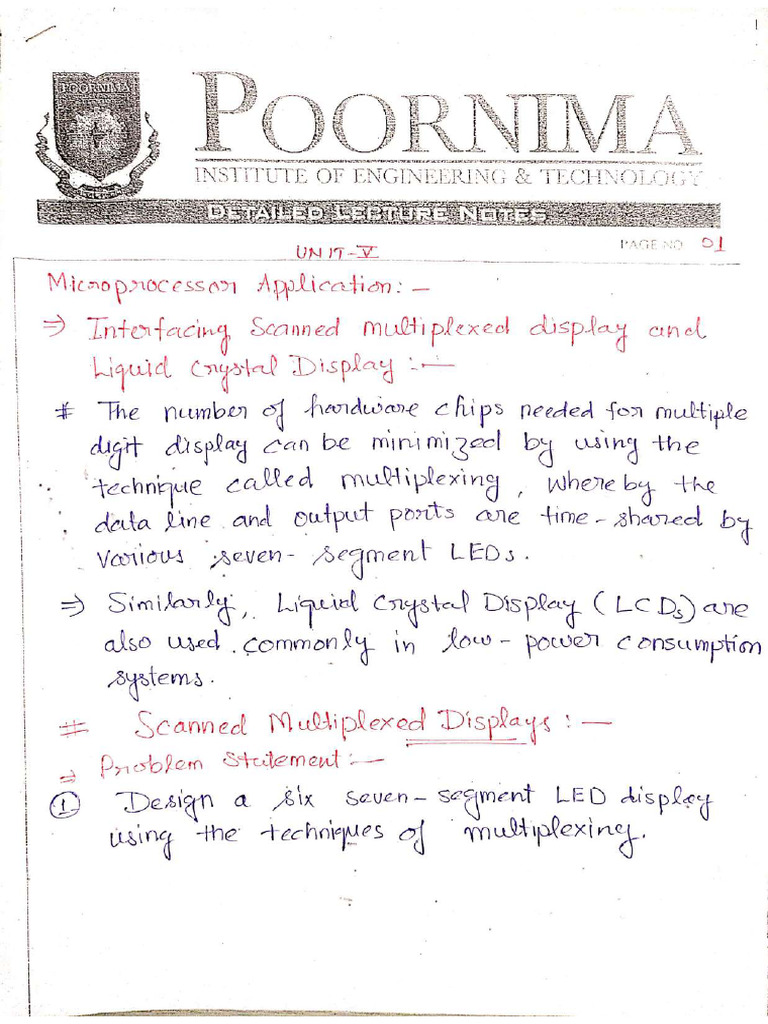 POORNIMA
POORNIMA
INSTITUTE OF ENGINEERING & TECHNOLOGY
DETAILED LECTURE NOTES
PAGE NO. 01
UNIT-V
Microprocessor Application:-
⇒ Interfacing Scanned multiplexed display and
Liquid Crystal Display :-
# The number of hardware chips needed for multiple
digit display can be minimized by using the
technique called multiplexing, whereby the
data line and output ports are time-shared by
various seven-segment LEDs.
⇒ Similarly, Liquid Crystal Display (LCDs) are
also used commonly in low-power consumption
systems.
# Scanned Multiplexed Displays :-
⇒ Problem Statement:-
① Design a six seven-segment LED display
using the techniques of multiplexing.